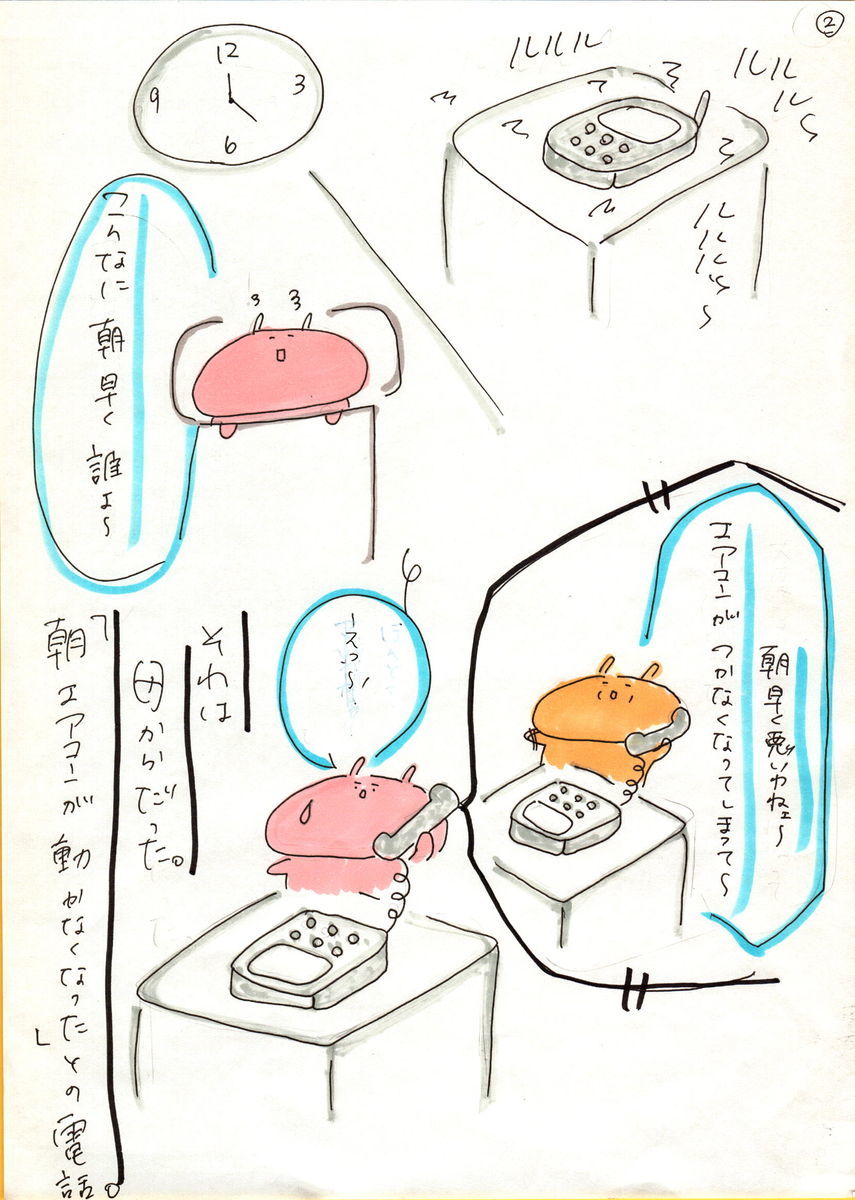 ②
ルルル
ルルル〜
ルルルル〜
12
3
6
9
こんなに 朝早く 誰ょ〜
朝早く悪いわねェ〜
エアコンが つかなくなってしまって〜
えっ〜!
それは
母からだった。
「朝エアコンが動かなくなったとの電話。」